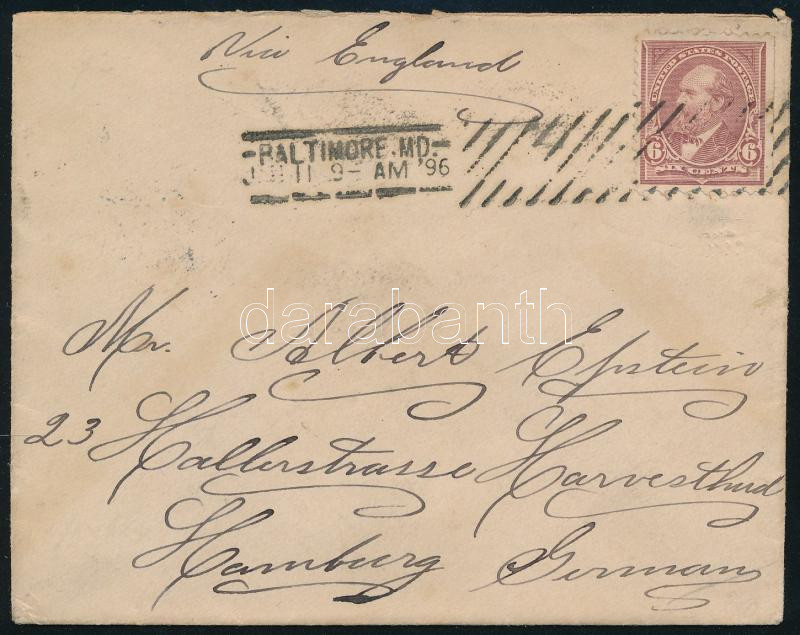 Via England
UNITED STATES POSTAGE
6 6
SIX CENTS
BALTIMORE, MD.
11 9- AM '96
darabanth
Mr. Albert Epstein
23 Hallerstrasse Harvesthud
Hamburg Germany